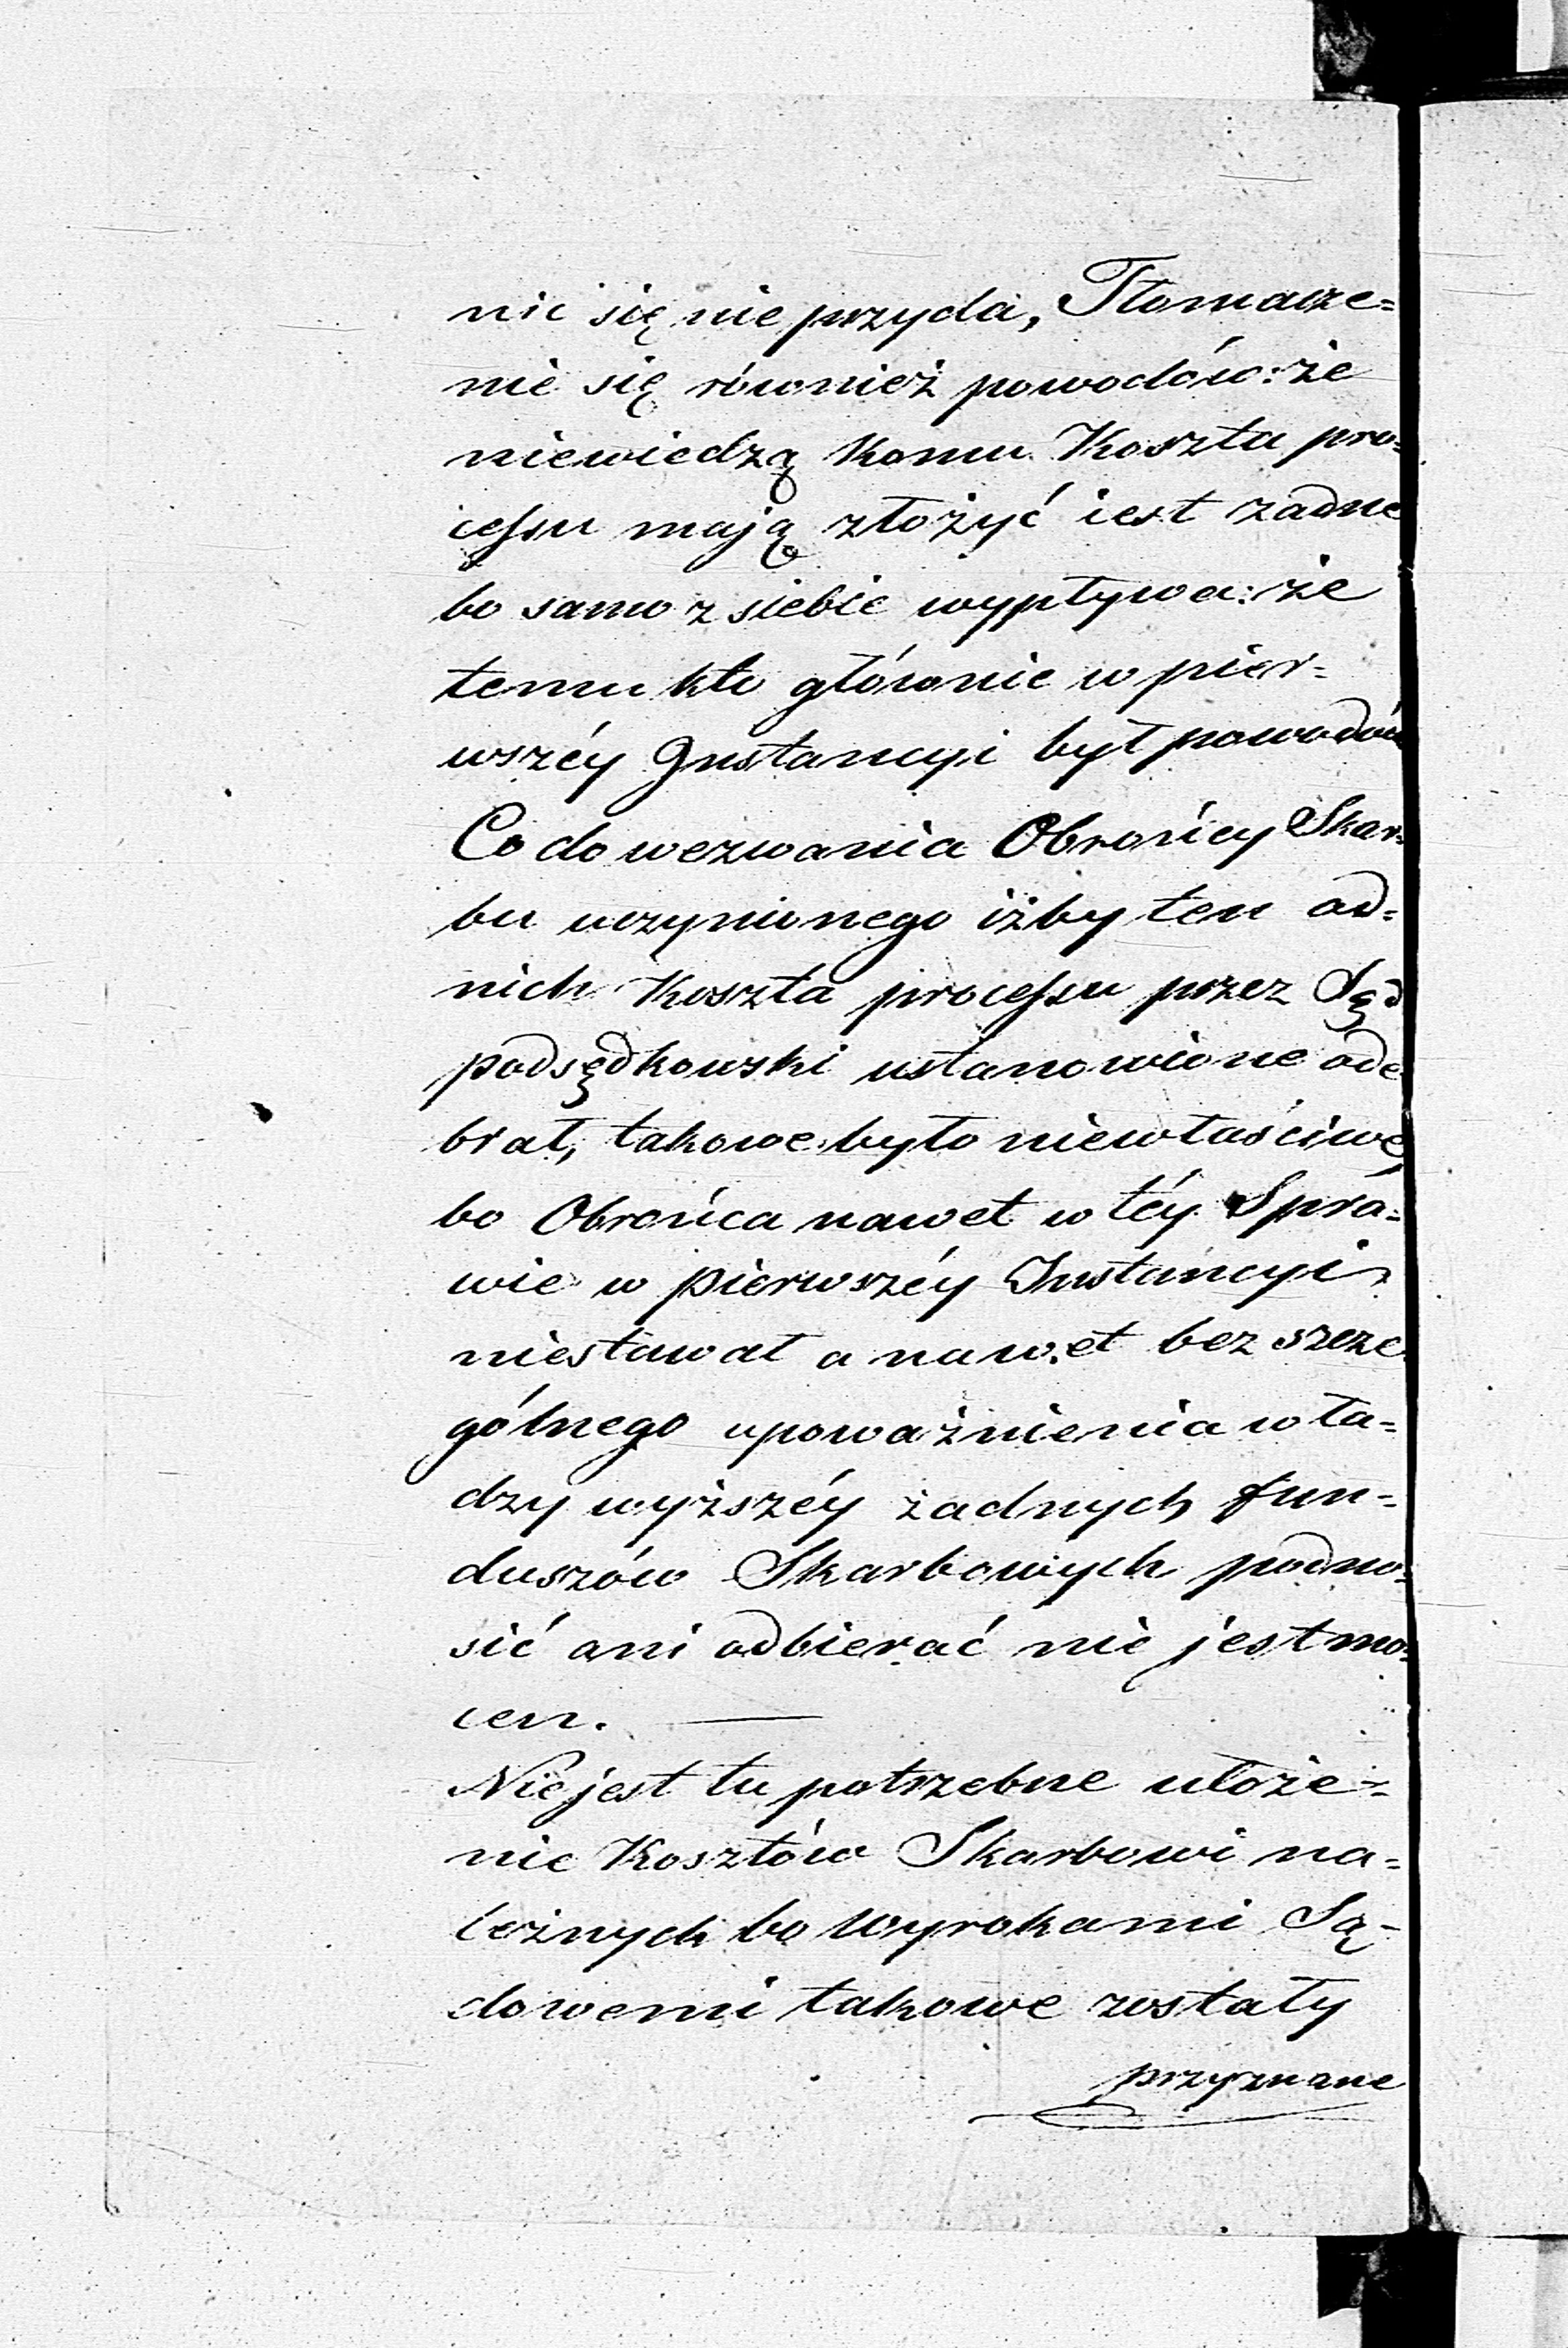 nic się nie przyda, Tłomacze=
nie się również powodów: że
niewiedzą komu Koszta pro=
cessu mają złożyć iest żadne
bo samo z siebie wypływa: że
temu kto głównie w pier=
wszéy Instancyi był powodów
Co do wezwania Obrońcy Skar=
bu uczynionego iżby ten od=
nich Koszta processu przez Sąd
podsędkowski ustanowione ode
brał, takowe było niewłaściwe,
bo Obrońca nawet w téy Spra=
wie w pierwszéy Instancyi
niestawał a nawet bez szcze
gólnego upoważnienia wła=
dzy wyższéy żadnych fun=
duszów Skarbowych podno=
sić ani odbierać nie jest mo=
cen. —
Nie jest tu potrzebne ułoże=
nie Kosztów Skarbowi na=
leżnych bo Wyrokami Są-
dowemi takowe zostały
przyznane